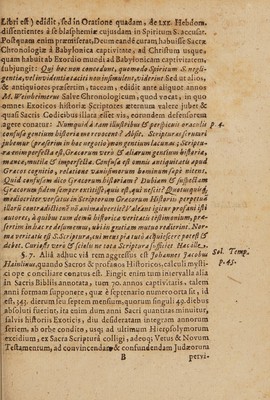 Libri est) edidit, sed in Oratione quadam, de LXX. Hebdom.
dissentientes à se blasphemiæ cujusdam in Spiritum S. accusat.
Postquam enim præmiserat, Deum eandē curam habuisse Sacræ
Chronologiæ à Babylonica captivitate, ad Christum usque,
quam habuit ab Exordio mundi ad Babylonicam captivitatem,
subjungit: Qui hoc non concedunt, quomodo Spiritum S. negli-
gentiæ, vel invidentiæ taciti non insimulent, viderint. Sed ut alios,
& antiquiores præsertim, taceam, edidit ante aliquot annos
M. Weinheimerus Salve Chronologicum, quod vocat, in quo
omnes Exoticos historiæ Scriptores æternum valere jubet &
quasi Sacris Codicibus illata esset vis, eorundem defensorem
agens conatur: Numquid à tam illustribus & perspicuis oraculis
confusa gentium historia me revocent? Absit. Scripturas scrutari
jubemur
manca, mutila & imperfecta. Confusa est omnis antiquitatis apud
Græcos cognitio, relatione vanissimorum hominum sapè nitens.
Quid confusum dico Græcorum historiam? Dubiam & suspectam
Græcorum fidem semper extitisse, quis est, qui nescit? Quotusquisq;
mediocriter versatus in Scriptorum Græcorum Historiis perpetuas
illorū contradictiones nō animadvertit?
fertim in hac re desumemus, ubi in gentium motus redierint. Nor-
ma veritatis est S. Scriptura, cui mens pia tutò acquiescere potest &
debet. Curiosis verò & sciolis ne tota Scriptura sufficiet Hac ille.
§. 7. Alia adhuc viâ rem aggressus est Johannes Jacobus
Hainlinus, quando Sacros & profanos Historicos calculi mysti-
ci ope conciliare conatus est. Fingit enim tum intervalla alia
in Sacris Bibliis annotata, tum 70. annos captivitatis, talem
anni formam supponere, quæ è septenario numero orta sit, id
est, 343. dierum seu septem mensium, quorum singuli 49. diebus
absoluti fuerint, ita enim dum anni Sacri quantitas minuitur,
salvis historiis Exoticis, diu desideratam integram annorum
seriem, ab orbe condito, usq; ad ultimum Hierosolymorum
excidium, ex Sacra Scriptura colligi, adeoq; Vetus & Novum
Testamentum, ad convincendam & confundendam Judæorum
B pervi-
p. 4.
Sol. Temp.
p. 45.